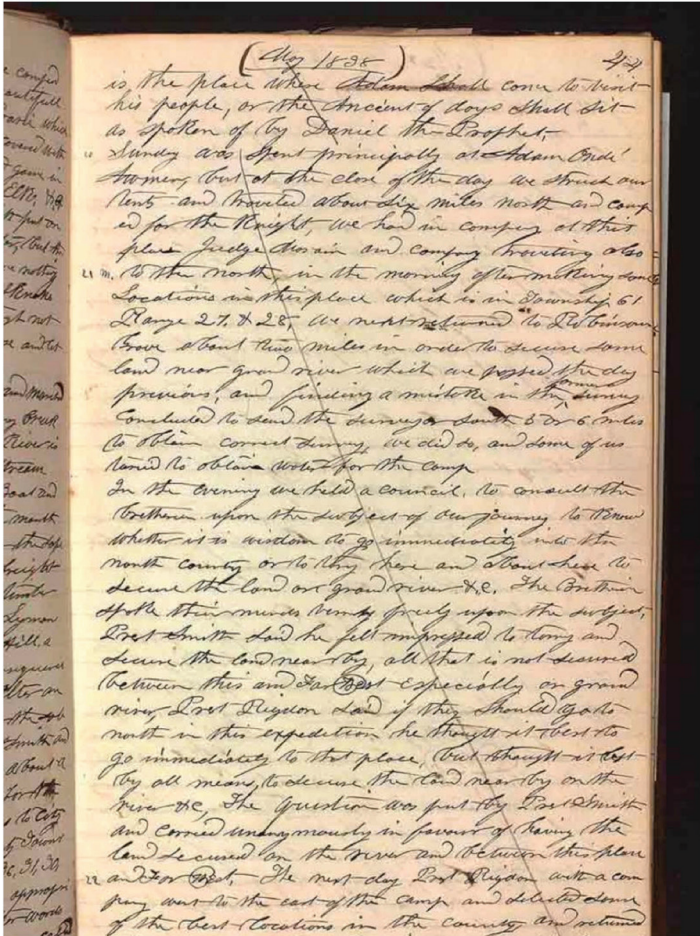 (May 1838)
44
is the place where Adam Shall come to visit
his people, or the Ancient of days Shall Sit
as spoken of by Daniel the Prophet,
Sunday was Spent principally at Adam Ondi
Awmen, but at the close of the day we struck our
tents and traveled about Six miles north and camp
ed for the Knight, we had in company at this
place Judge Morain and company traveling also
21 m. to the north, in the morning after making some
Locations in this place which is in Township 61
Range 27. & 28, we next returned to Robinsons
Grove about two miles in order to secure some
land near grand river which we passed the day
previous, and finding a mistake in the former survey
Concluded to send the surveyor south 5 or 6 miles
to obtain correct survey, we did so, and some of us
taried to obtain water for the camp
In the evening we held a council, to consult the
bretheren upon the subject of our journey to Know
whether it is wisdom to go immediately into the
north country or to tary here and about here to
secure the land on grand river &C. The Brethren
spoke their minds verry freely upon the subject,
Prest Smith Said he felt impressed to tarry and
secure the land near by, all that is not secured
between this and Far West Especially on grand
river, Prest Rigdon Said if they Should go to
north in this expedition he thought it best to
go immediately to that place, but thought it best
by all means, to secure the land near by on the
river &C, The question was put by Prest Smith
and carried unanymously in favour of having the
land secured on the river and between this place
22 and Far West, The next day Prest Rigdon with a com
pany went to the east of the camp and selected some
of the best locations in the county and returned